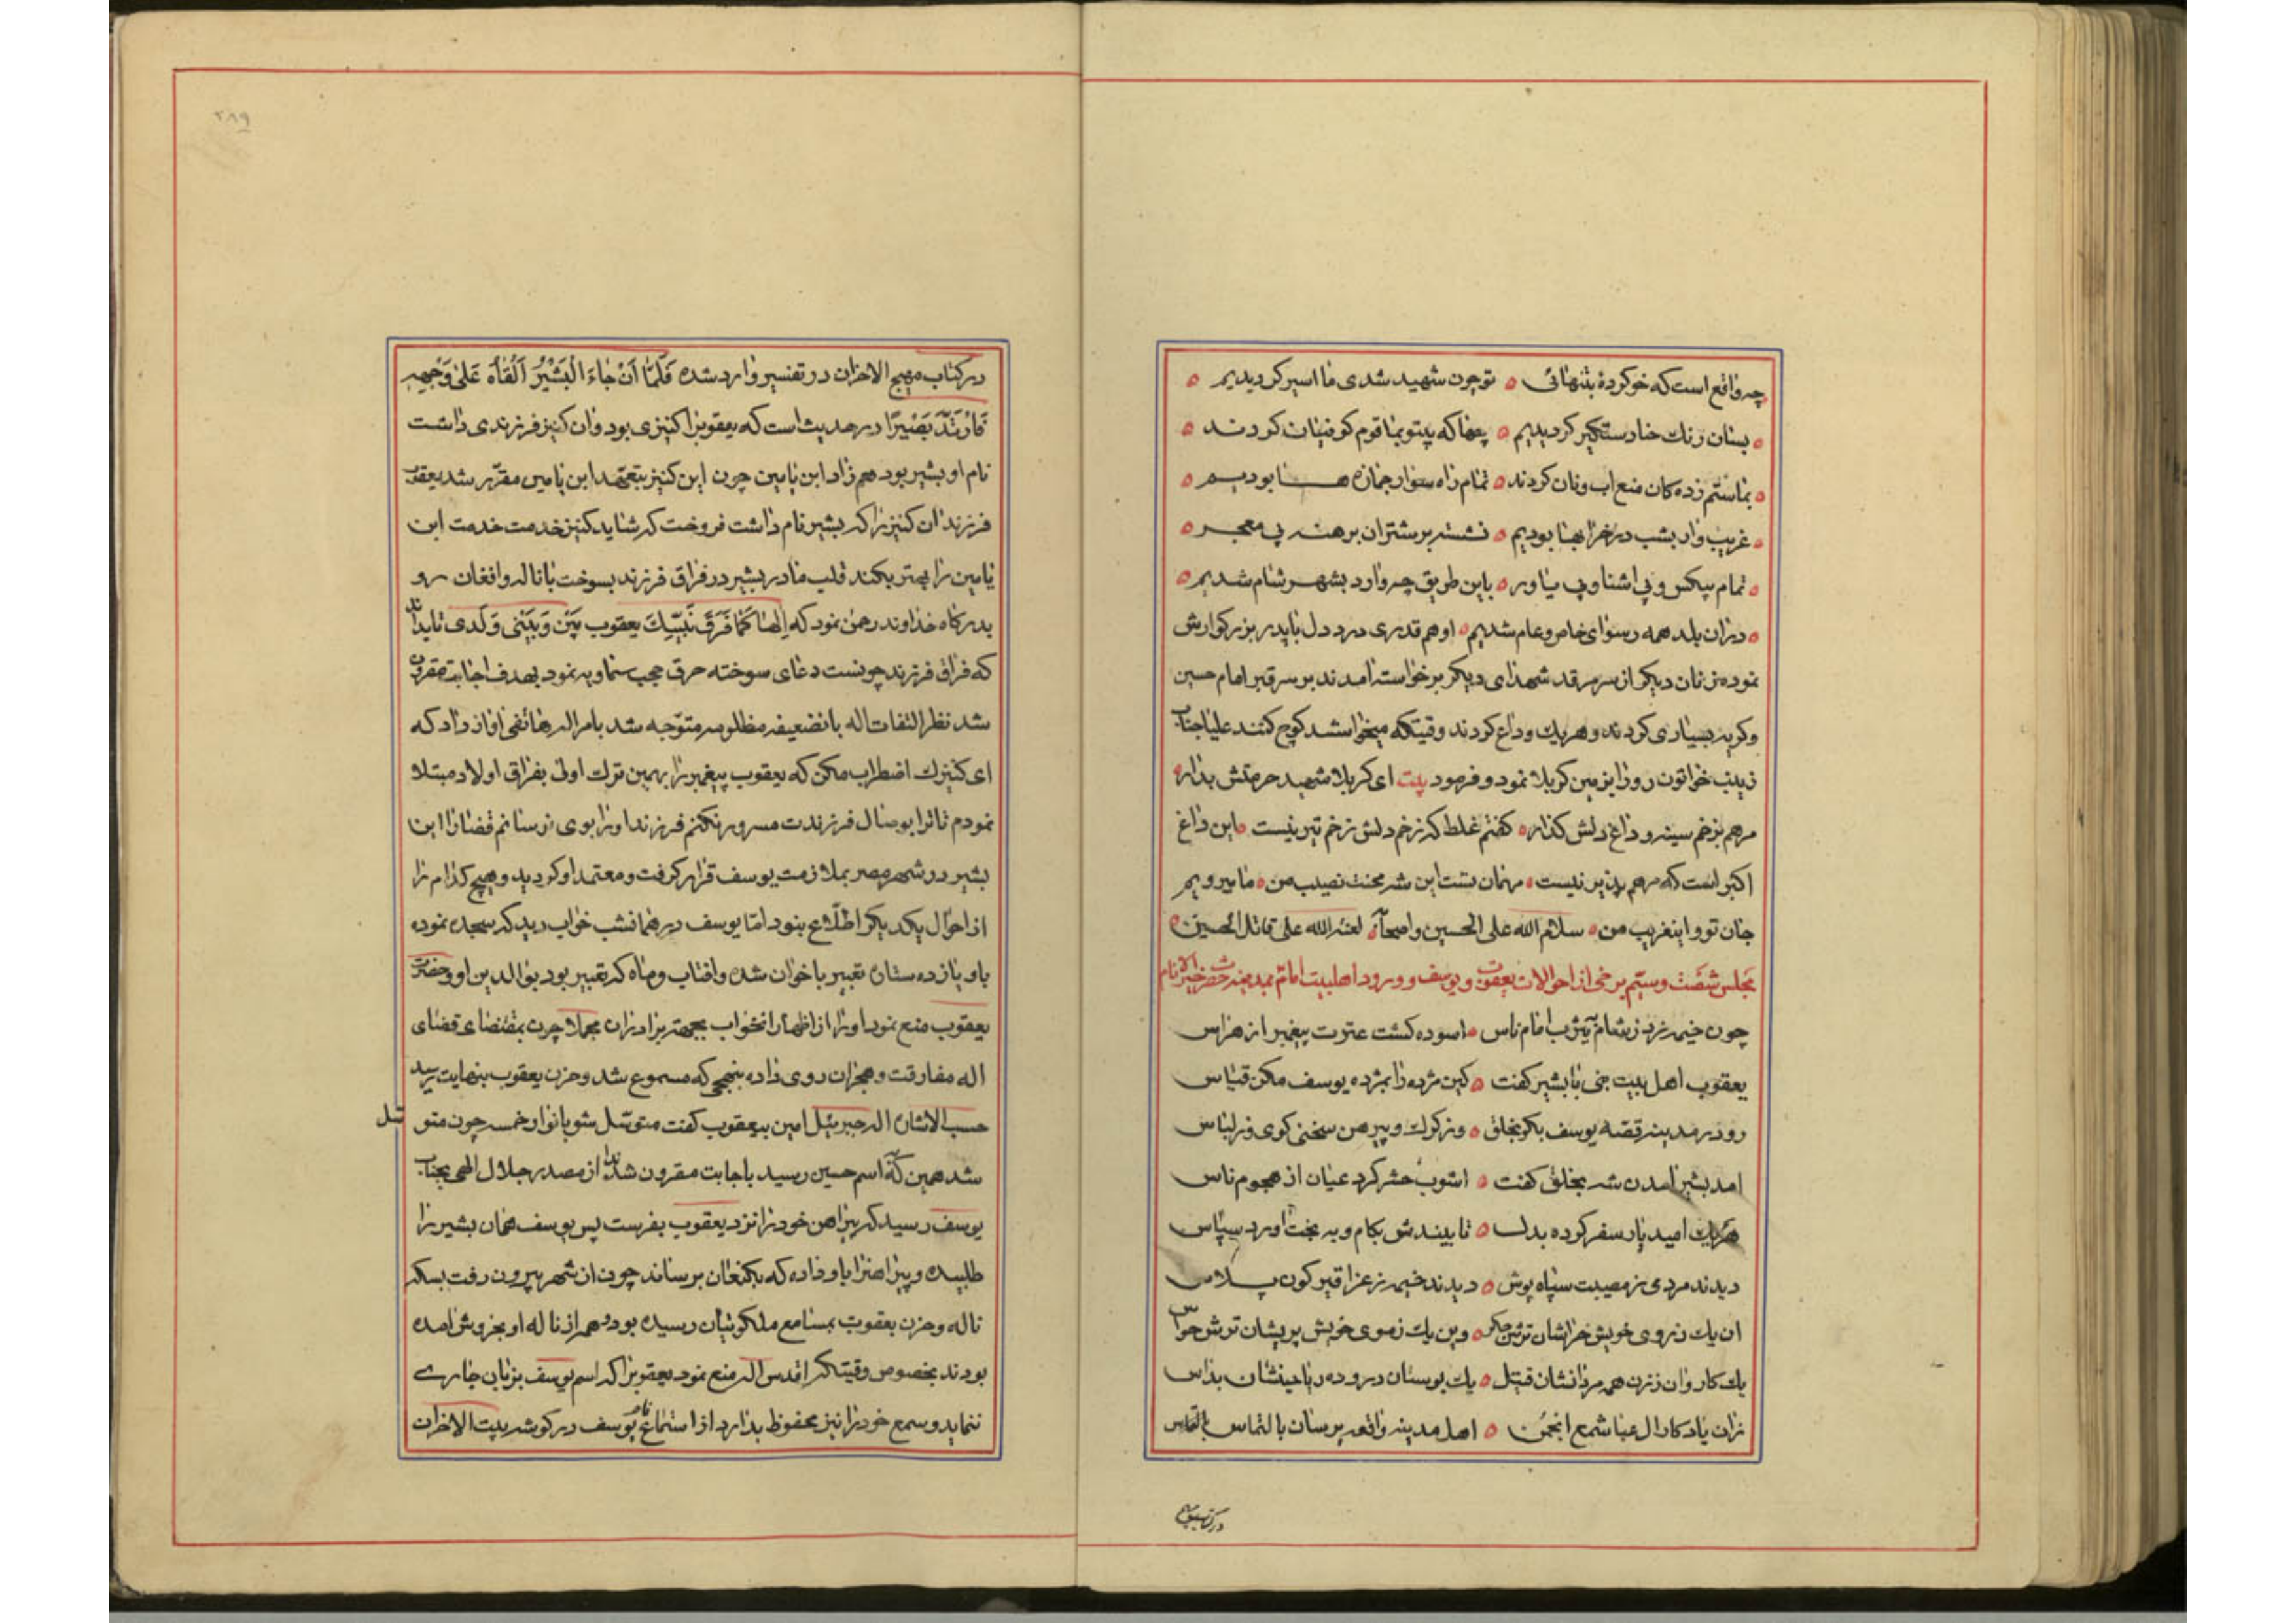 چه واقع است که خو کردهٔ بتنهائی ه تو چون شهید شدی ما اسیر کردیدیم ه
ه بسان رنك حنا دستکیر کردیدیم ه چها که بیتو بما قوم کوفیان کردند ه
ه بما ستم زده کان منع اب و نان کردند ه تمام راه سوار جمازه ها بودیم ه
ه غریب وار بشب در خرابها بودیم ه نشسته بر شتران برهنه بی معجر ه
ه تمام بیکس و بی اشنا و بی یاور ه باین طریق چه وارد بشهر شام شدیم ه
ه دران بلد همه رسوای خاص و عام شدیم ه او هم قدری درد دل با پدر بزرکوارش
نموده زنان دیکر از سر مرقد شهدای دیکر برخواسته امدند بر سر قبر امام حسین
و کریه بسیاری کردند و هریك وداع کردند وقتیکه میخواستند کوچ کنند علیاجناب
زینب خواتون رو را بزمین کربلا نمود و فرمود بیت ای کربلا شهید حرمتش بدار ه
مرهم بزخم سینه و داغ دلش کذار ه کفتم غلط که زخم دلش زخم تیر نیست ه این داغ
اکبر است که مرهم پذیر نیست ه مهمان تست این شه محنت نصیب من ه ما میرویم
جان تو و اینغریب من ه سلام الله علی الحسین و اصحابه لعنة الله علی قاتل الحسین ه
مجلس شصت و سیم برخی از احوالات یعقوب و یوسف و ورود اهلبیت امام بمدینه حضرت خیر الانام
چون خیمه زد ز شام بیثرب امام ناس ه اسوده کشت عترت پیغمبر از هراس
یعقوب اهل بیت نبی با بشیر کفت ه کین مژده را بمژده یوسف مکن قیاس
رو در مدینه قصه یوسف بکو بخلق ه وز کرك و پیرهن سخنی کوی در لباس
امد بشیر امدن شه بخلق کفت ه اشوب حشر کرد عیان از هجوم ناس
هریك امید یار سفر کرده بدل ه تا بیندش بکام و به بخت اورد سپاس
دیدند مردی ز مصیبت سیاه پوش ه دیدند خیمه ز عزا قیرکون پلاس
ان یك ز روی خویش خراشان جکر ه وین یك ز موی خویش پریشان ترش حواس
یك کاروان زن همه مردانشان قتیل ه یك بوستان دروده ریاحینشان بداس
زان یادکار ال عبا شمع انجمن ه اهل مدینه واقعه پرسان بالتماس
در کتاب مهیج
۲۸۹
در کتاب مهیج الاحزان در تفسیر وارد شده فَلَمّا اَنْ جاءَ الْبَشیرُ اَلْقاهُ عَلی وَجْهِهِ
فَارْتَدَّ بَصیرًا در حدیث است که یعقوبرا کنیزی بود و ان کنیز فرزندی داشت
نام او بشیر بود همزاد ابن یامین چون این کنیز بتعهد ابن یامین مقرر شد یعقوب
فرزند ان کنیز را که بشیر نام داشت فروخت که شاید کنیز خدمت خدمت ابن
یامین را بهتر بکند قلب مادر بشیر در فراق فرزند بسوخت با ناله و افغان رو
بدرکاه خداوند رحمن نمود که اِلها کَما فَرَقَ نَبیِّكَ یعقوب بَیْنی وَبَیْنَ وَلَدی تا بداند
که فراق فرزند چونست دعای سوخته حرق حجب سماویه نمود بهدف اجابت مقرون
شد نظر التفات اله بانضعیفه مظلومه متوجه شد بامر اله هاتفی اواز داد که
ای کنیزك اضطراب مکن که یعقوب پیغمبر را بهمین ترك اولی بفراق اولاد مبتلا
نمودم تا ترا بوصال فرزندت مسرور نکنم فرزند او را بوی نرسانم قضا را این
بشیر در شهر مصر بملازمت یوسف قرار کرفت و معتمد او کردید و هیچ کدام را
از احوال یکدیکر اطلاع نبود اما یوسف در همانشب خواب دید که سجده نموده
باو یازده ستاره تعبیر باخوان شده و افتاب و ماه که تعبیر بود بوالدین او و حضرت
یعقوب منع نمود او را از اظهار انخواب بجهة برادران مجملا چون بمقتضای قضای
اله مفارقت و هجران روی داده بنهجی که مسموع شد و حزن یعقوب بنهایت رسید
حسب الاشاره اله جبرئیل امین بیعقوب کفت متوسل شو بانوار خمسه چون متوسل
شد همین که باسم حسین رسید باجابت مقرون شد ندا از مصدر جلال الهی بجناب
یوسف رسید که پیراهن خود را نزد یعقوب بفرست پس یوسف همان بشیر را
طلبیده و پیراهنرا باو داده که بکنعان برساند چون از شهر بیرون رفت بسکه
ناله و حزن یعقوب بمسامع ملکوتیان رسیده بود همه از ناله او بخروش امده
بودند بخصوص وقتیکه اقدس اله منع نمود یعقوبرا که اسم یوسف بزبان جاری
ننماید و سمع خود را نیز محفوظ بدارد از استماع نام یوسف در کوشه بیت الاحزان